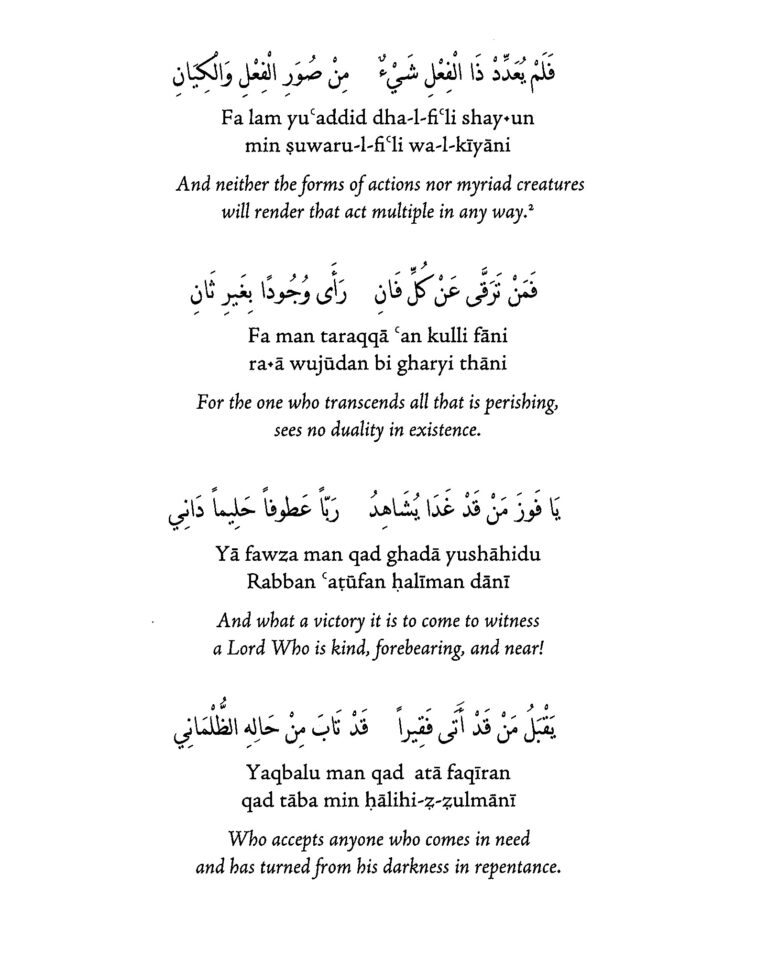 فَلَمْ يُعَدِّدْ ذَا الْفِعْلِ شَيْءٌ    مِنْ صُوَرِ الْفِعْلِ وَالْكِيَانِ
Fa lam yuʿaddid dha-l-fiʿli shay⬩un
min ṣuwaru-l-fiʿli wa-l-kīyāni
And neither the forms of actions nor myriad creatures
will render that act multiple in any way.²
فَمَنْ تَرَقَّى عَنْ كُلِّ فَانِ    رَأَى وُجُودًا بِغَيرِ ثَانِ
Fa man taraqqā ʿan kulli fāni
ra⬩ā wujūdan bi gharyi thāni
For the one who transcends all that is perishing,
sees no duality in existence.
يَا فَوزَ مَنْ قَدْ غَدَا يُشَاهِدُ    رَبّاً عَطوفاً حَلِيماً دَانِي
Yā fawza man qad ghadā yushāhidu
Rabban ʿaṭūfan ḥalīman dānī
And what a victory it is to come to witness
a Lord Who is kind, forebearing, and near!
يَقْبَلُ مَنْ قَدْ أَتَى فَقِيراً    قَدْ تَابَ مِنْ حَالِهِ الظُّلْمَانِي
Yaqbalu man qad atā faqīran
qad tāba min ḥālihi-ẓ-ẓulmānī
Who accepts anyone who comes in need
and has turned from his darkness in repentance.